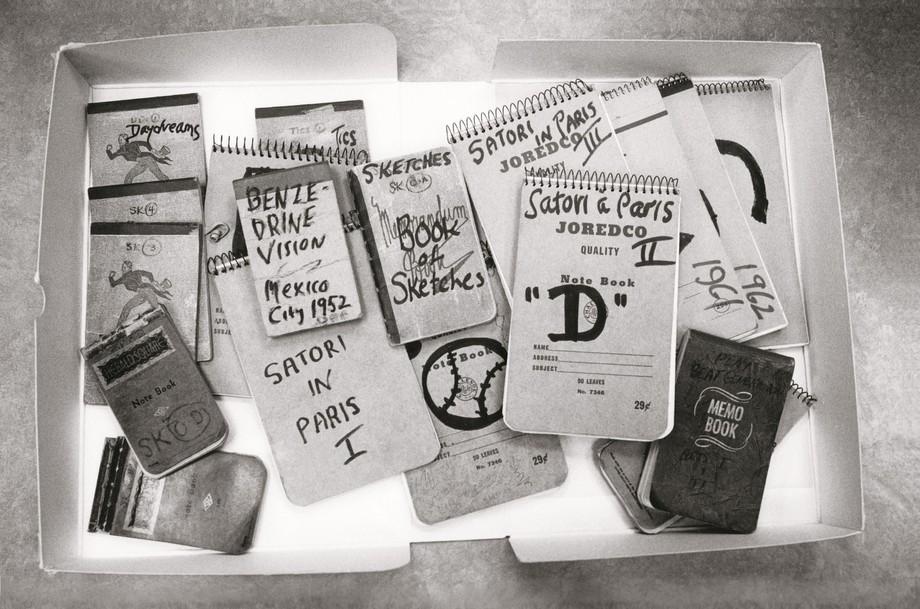 Daydreams
SK 4
SK 3
TICS
Tics
HERALD SQUARE
Note Book
SK(C-D)
BENZE-
DRINE
VISION
Mexico
City 1952
SATORI
IN
PARIS
I
SKETCHES
SK
Memorandum
Book
of
Sketches
Note Book
90 LEAVES
No. 7346
29¢
SATORI IN PARIS
JOREDCO
III
QUALITY
Satori a Paris
JOREDCO
QUALITY
II
Note Book
"D"
NAME
ADDRESS
SUBJECT
90 LEAVES
No. 7346
29¢
1961
1962
MEMO
BOOK